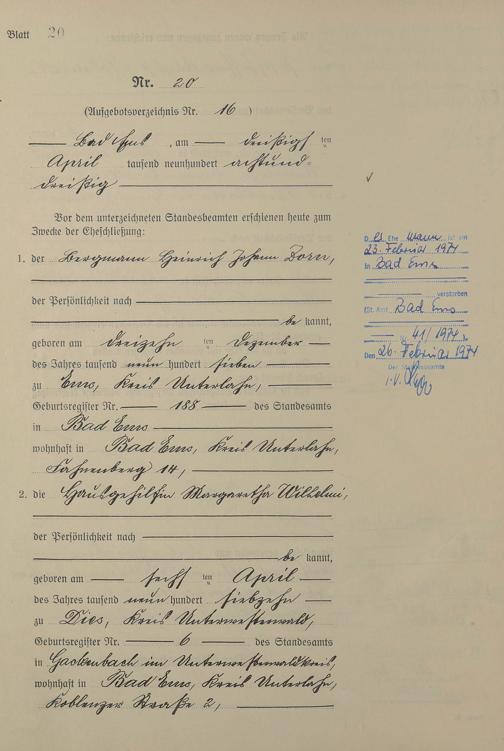 Blatt 20
Nr. 20
(Aufgebotsverzeichnis Nr. 16 )
Bad Ems, am dreißigsten
April tausend neunhundert achtund-
dreißig
Vor dem unterzeichneten Standesbeamten erschienen heute zum
Zwecke der Eheschließung:
1. der Bergmann Heinrich Johann Dorn,
der Persönlichkeit nach
be kannt,
geboren am dreizehn ten Dezember
des Jahres tausend neun hundert sieben
zu Ems, Kreis Unterlahn,
Geburtsregister Nr. 188 des Standesamts
in Bad Ems
wohnhaft in Bad Ems, Kreis Unterlahn,
Fahnenberg 14,
2. die Hausgehilfin Margaretha Wilhelmi,
der Persönlichkeit nach
be kannt,
geboren am sechs ten April
des Jahres tausend neun hundert siebzehn
zu Dies, Kreis Unterwesterwald,
Geburtsregister Nr. 6 des Standesamts
in Gackenbach im Unterwesterwaldkreis,
wohnhaft in Bad Ems, Kreis Unterlahn,
Koblenzer Straße 2,
D er Ehe mann ist am
23. Februar 1974
in Bad Ems
verstorben
(St. Amt Bad Ems
Nr. 41/1974 )
Den 26. Februar 1974
Der Standesbeamte
i.V.